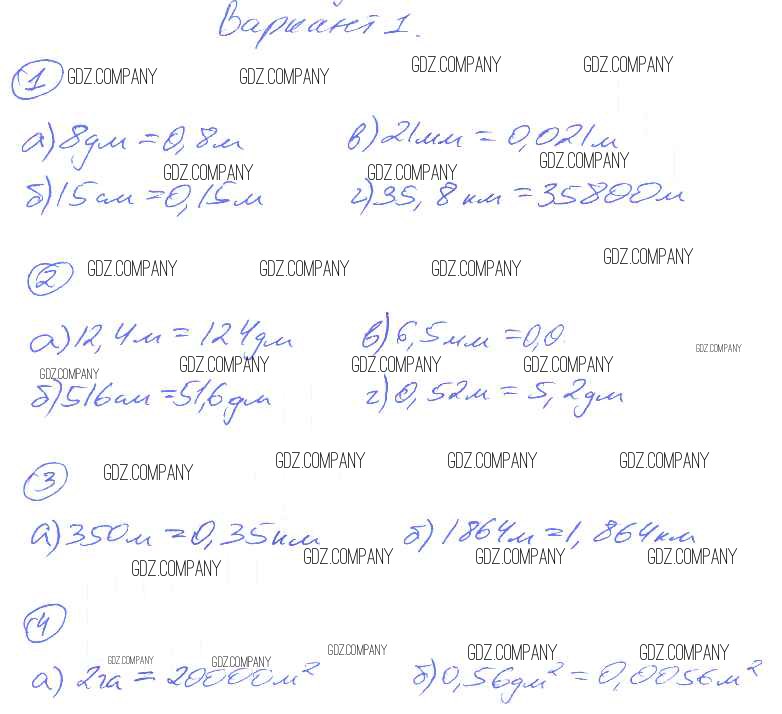 Вариант 1.
1 GDZ.COMPANY GDZ.COMPANY GDZ.COMPANY GDZ.COMPANY
а) 8дм = 0,8м в) 21мм = 0,021м
GDZ.COMPANY GDZ.COMPANY GDZ.COMPANY
б) 15см = 0,15м г) 35,8км = 35800м
2 GDZ.COMPANY GDZ.COMPANY GDZ.COMPANY GDZ.COMPANY
а) 12,4м = 124дм в) 6,5мм = 0,0
GDZ.COMPANY GDZ.COMPANY GDZ.COMPANY GDZ.COMPANY GDZ.COMPANY
б) 516см = 51,6дм г) 0,52м = 5,2дм
3 GDZ.COMPANY GDZ.COMPANY GDZ.COMPANY GDZ.COMPANY
а) 350м = 0,35км б) 1864м = 1,864км
GDZ.COMPANY GDZ.COMPANY GDZ.COMPANY GDZ.COMPANY
4
GDZ.COMPANY GDZ.COMPANY GDZ.COMPANY GDZ.COMPANY GDZ.COMPANY
а) 2га = 20000м² б) 0,56дм² = 0,0056м²